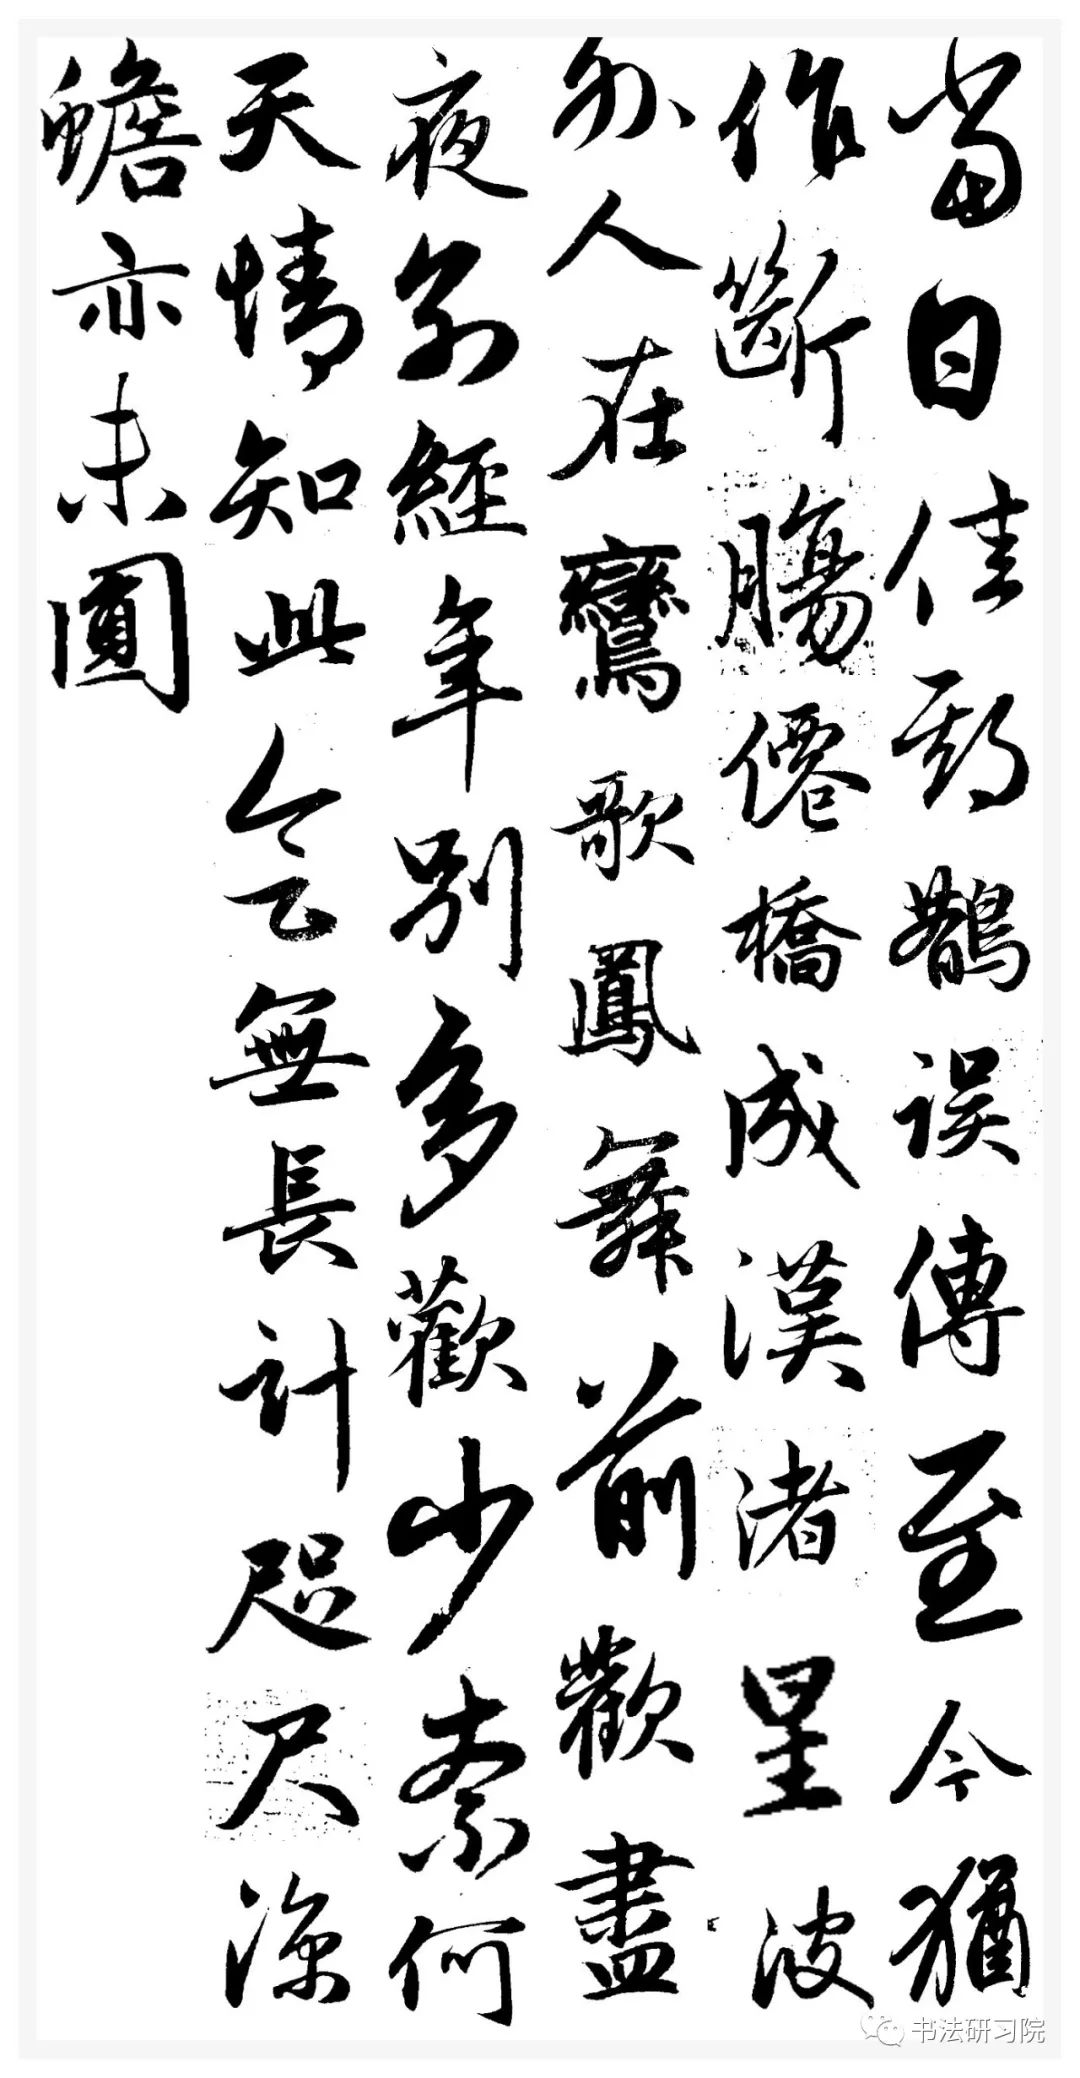 當日佳期鵲誤傳至今猶
作斷腸僊橋成漢渚星波
外人在鸞歌鳳舞前歡盡
夜別經年別多歡少柰何
天情知此会無長計咫尺涼
蟾亦未圓
书法研习院